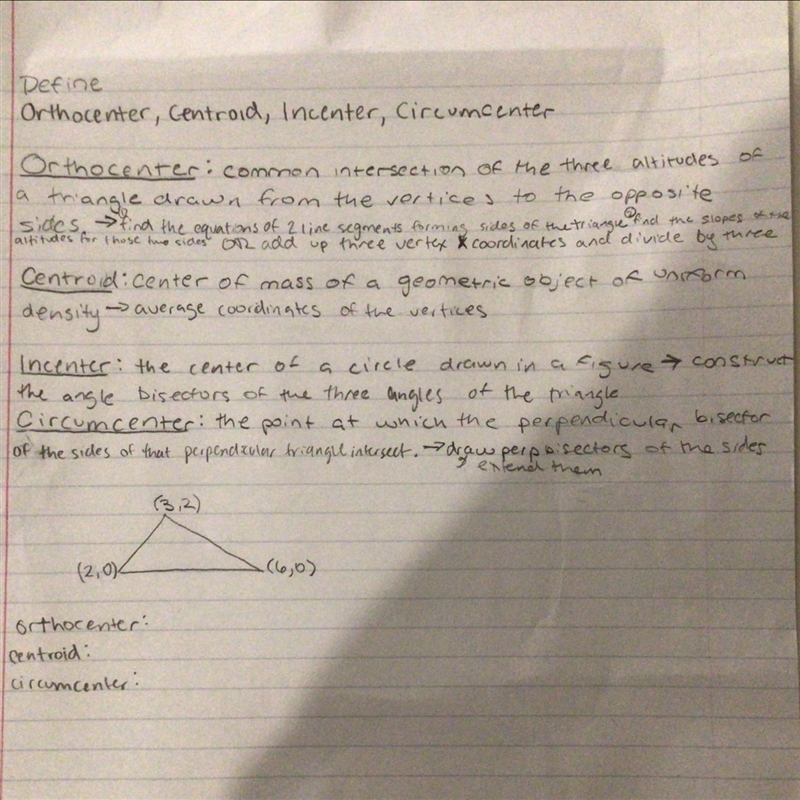 Define
Orthocenter, Centroid, Incenter, Circumcenter
Orthocenter: common intersection of the three altitudes of
a triangle drawn from the vertices to the opposite
sides. → ① find the equations of 2 line segments forming sides of the triangle ② find the slopes of the
altitudes for those two sides OR add up three vertex x coordinates and divide by three
Centroid: center of mass of a geometric object of uniform
density → average coordinates of the vertices
Incenter: the center of a circle drawn in a figure → construct
the angle bisectors of the three angles of the triangle
Circumcenter: the point at which the perpendicular bisector
of the sides of that perpendicular triangle intersect. → draw perp bisectors of the sides
→ extend them
(3,2)
(2,0) (6,0)
orthocenter:
centroid:
circumcenter: